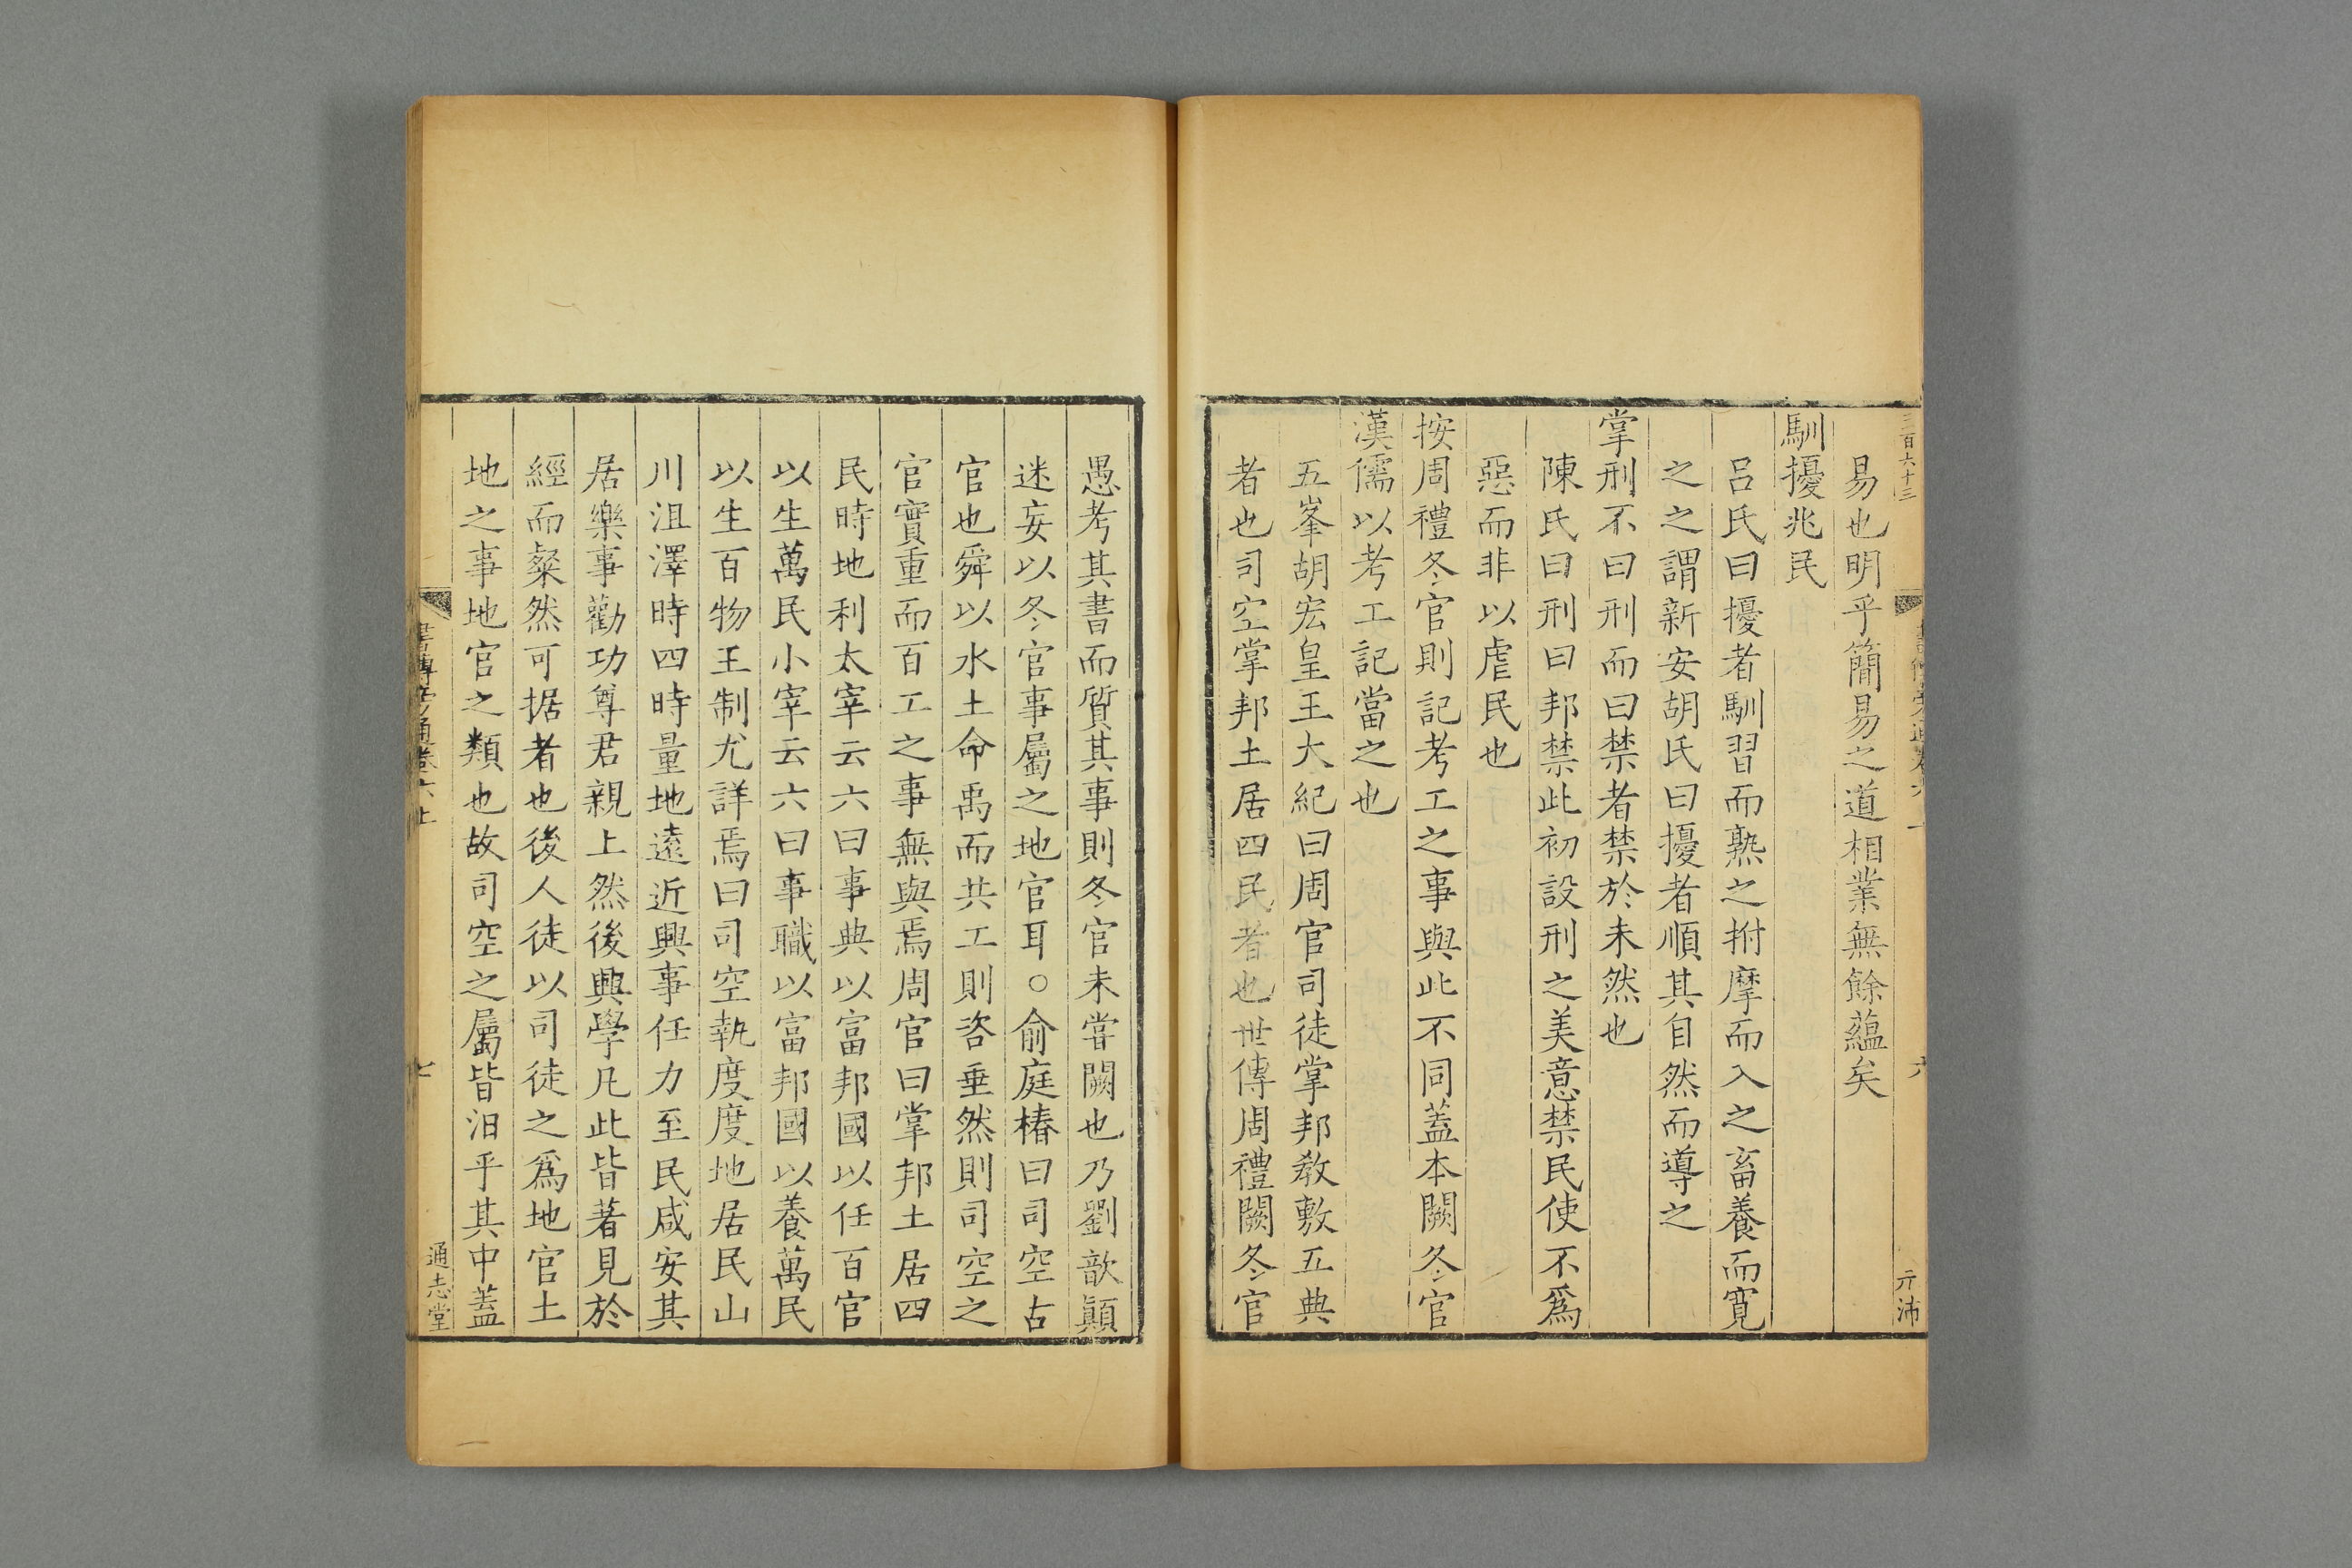 三百六十三
亓沛
易也明乎簡易之道相業無餘蘊矣
馴擾兆民
呂氏曰擾者馴習而熟之拊摩而入之畜養而寛
之之謂新安胡氏曰擾者順其自然而導之
掌刑不曰刑而曰禁者禁於未然也
陳氏曰刑曰邦禁此初設刑之美意禁民使不爲
惡而非以虐民也
按周禮冬官則記考工之事與此不同蓋本闕冬官
漢儒以考工記當之也
五峯胡宏皇王大紀曰周官司徒掌邦敎敷五典
者也司空掌邦土居四民者也世傳周禮闕冬官
愚考其書而質其事則冬官未甞闕也乃劉歆顚
迷妄以冬官事屬之地官耳○俞庭椿曰司空古
官也舜以水土命禹而共工則咨垂然則司空之
官實重而百工之事無與焉周官曰掌邦土居四
民時地利太宰云六曰事典以富邦國以任百官
以生萬民小宰云六曰事職以富邦國以養萬民
以生百物王制尤詳焉曰司空執度度地居民山
川沮澤時四時量地遠近興事任力至民咸安其
居樂事勸功尊君親上然後興學凡此皆著見於
經而粲然可据者也後人徒以司徒之爲地官土
地之事地官之類也故司空之屬皆汨乎其中蓋
書傳旁通卷六上
七
通志堂